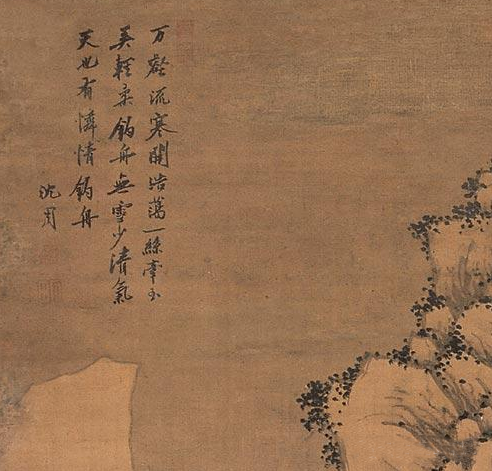 万壑流寒開浩蕩一絲牽
輕柔釣舟無雪少清氣
天也有憐情釣舟
沈周